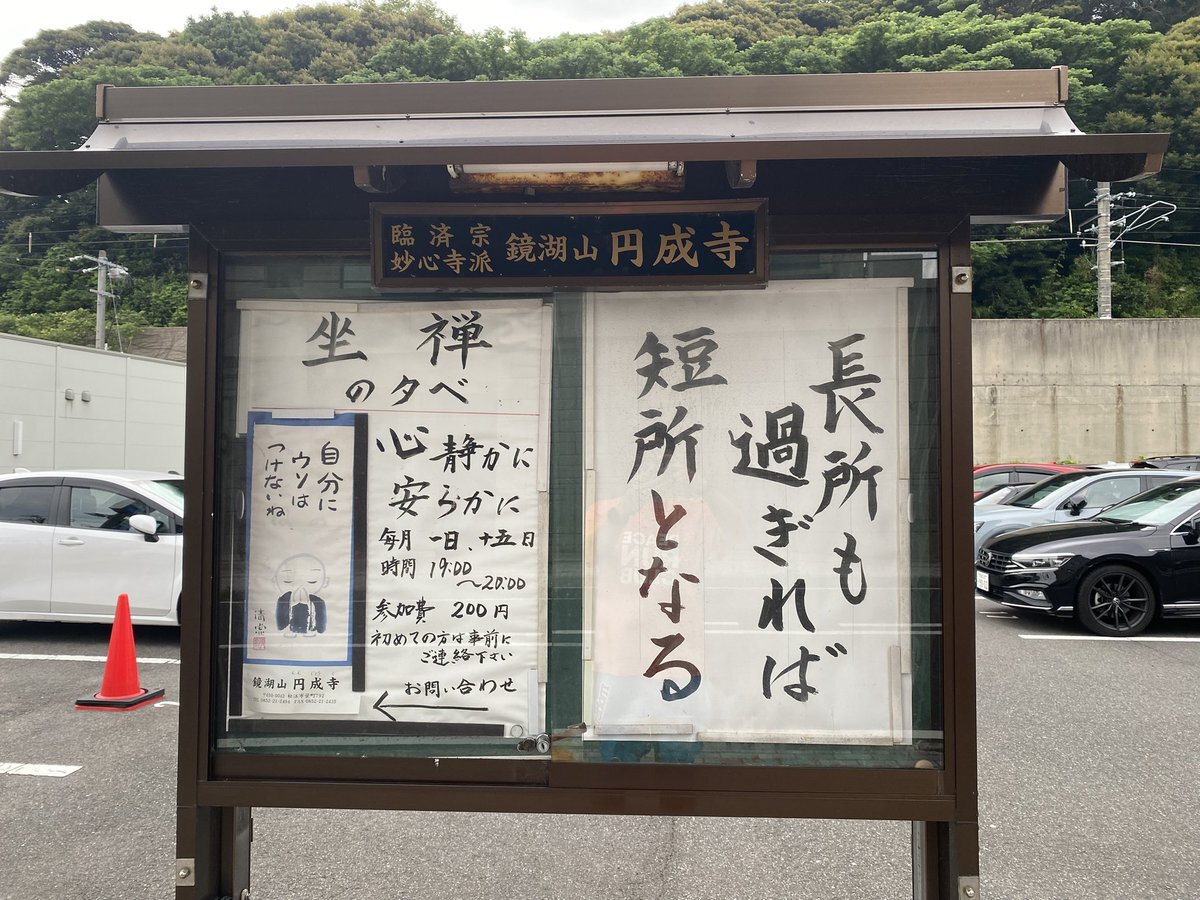 臨済宗
妙心寺派
鏡湖山 円成寺
坐禅
の夕べ
心静かに
安らかに
毎月 一日、十五日
時間 19:00
〜20:00
参加費 200円
初めての方は事前に
ご連絡下さい
お問い合わせ
自分に
ウソは
つけないね
鏡湖山 円成寺
TEL 0852-21-2494 FAX 0852-21-2435
長所も
過ぎれば
短所
となる